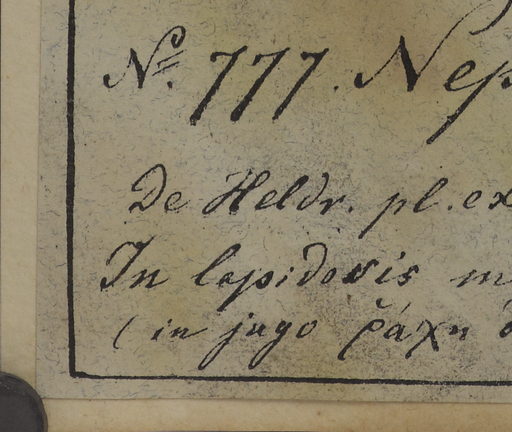 Nº. 777. Nep
De Heldr. pl. ex
In lapidosis m
( in jugo ῥάχη